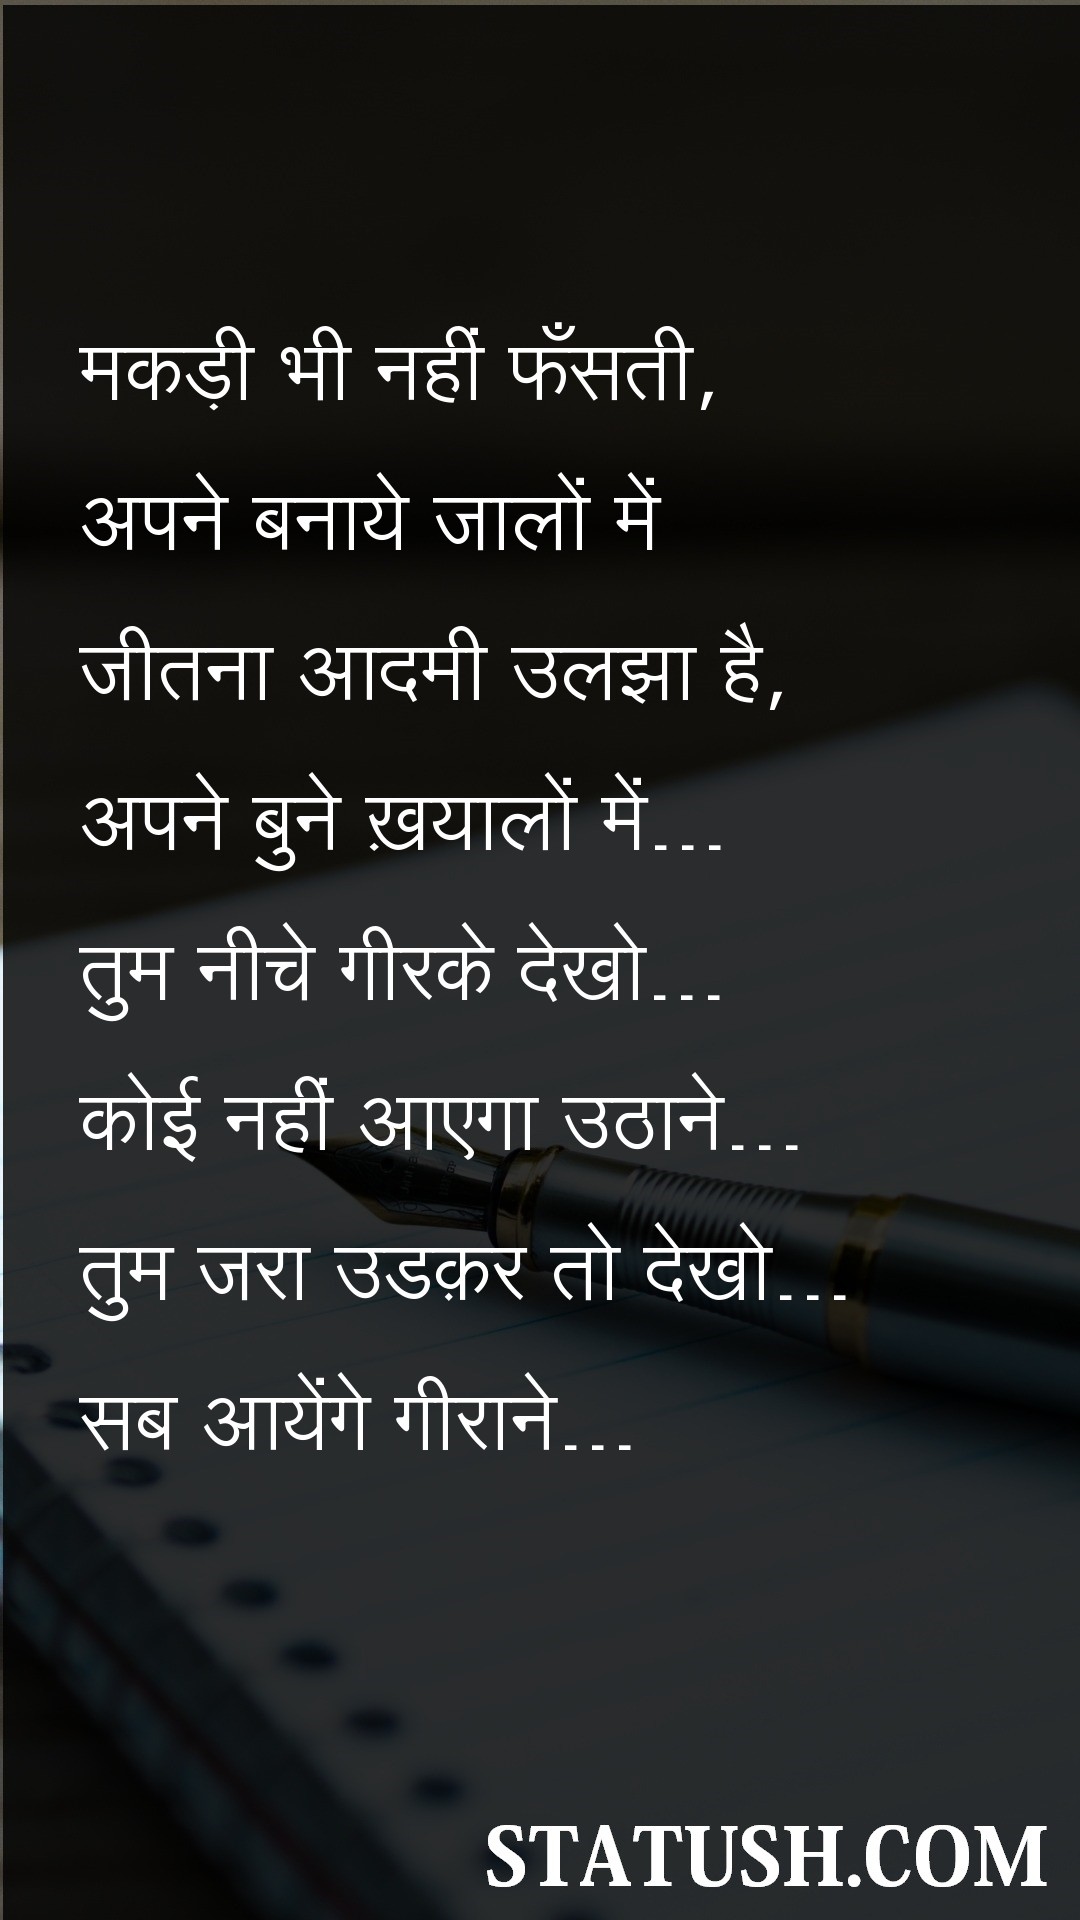 मकड़ी भी नहीं फँसती,
अपने बनाये जालों में
जीतना आदमी उलझा है,
अपने बुने ख़यालों में...
तुम नीचे गीरके देखो...
कोई नहीं आएगा उठाने...
तुम जरा उडक़र तो देखो...
सब आयेंगे गीराने...
STATUSH.COM